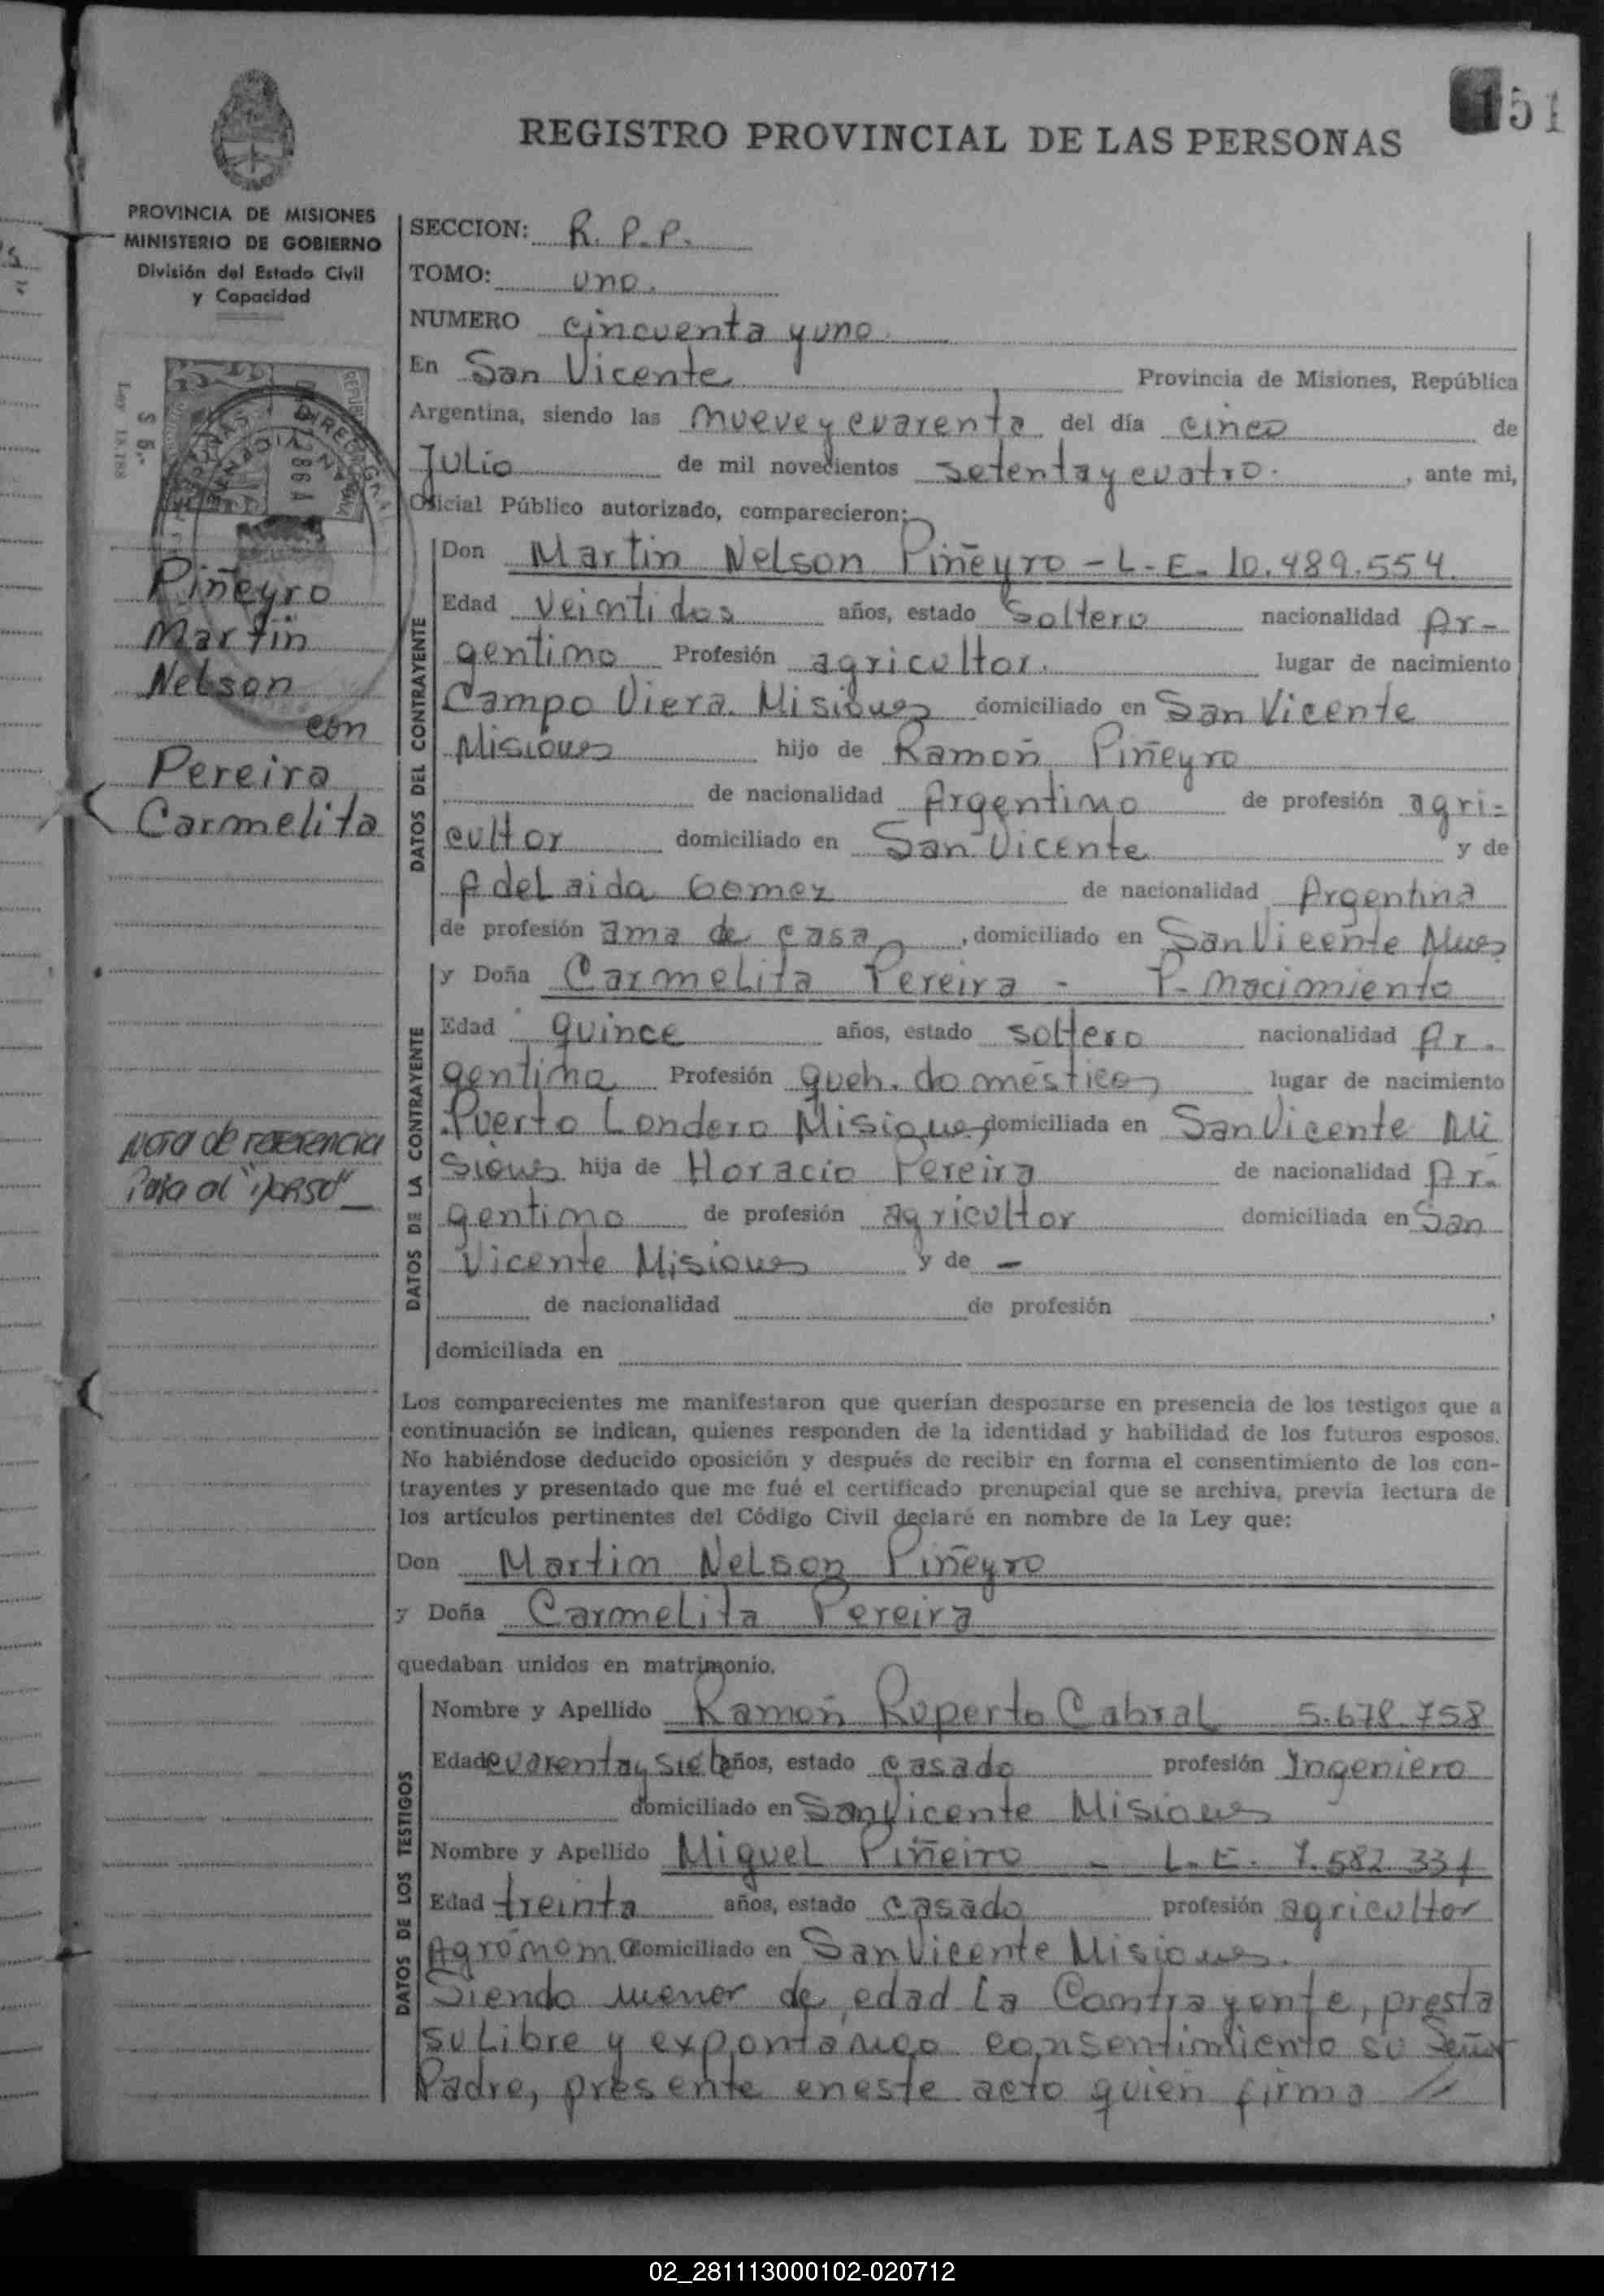 151
REGISTRO PROVINCIAL DE LAS PERSONAS
PROVINCIA DE MISIONES
MINISTERIO DE GOBIERNO
División del Estado Civil
y Capacidad
$ 5.-
Ley 18.188
Piñeyro
Martin
Nelson
con
Pereira
Carmelita
Nota de referencia
Pasa al "dorso"
SECCION: R. P. P.
TOMO: uno.
NUMERO cincuenta y uno.
En San Vicente Provincia de Misiones, República
Argentina, siendo las nueve y cuarenta del día cinco de
Julio de mil novecientos setenta y cuatro. , ante mi,
Oficial Público autorizado, comparecieron:
DATOS DEL CONTRAYENTE
Don Martin Nelson Piñeyro - L. E. 10.489.554
Edad veintidos años, estado soltero nacionalidad Ar-
gentino Profesión agricultor. lugar de nacimiento
Campo Viera. Misiones domiciliado en San Vicente
Misiones hijo de Ramon Piñeyro
de nacionalidad Argentino de profesión agri-
cultor domiciliado en San Vicente y de
Adelaida Gomez de nacionalidad Argentina
de profesión ama de casa , domiciliado en San Vicente Mnes
DATOS DE LA CONTRAYENTE
y Doña Carmelita Pereira - P. Nacimiento
Edad quince años, estado soltero nacionalidad Ar.
gentina Profesión queh. domésticos lugar de nacimiento
Puerto Londero Misiones domiciliada en San Vicente Mi
siones hija de Horacio Pereira de nacionalidad Ar.
gentino de profesión agricultor domiciliada en San
Vicente Misiones y de -
de nacionalidad de profesión ,
domiciliada en
Los comparecientes me manifestaron que querían desposarse en presencia de los testigos que a
continuación se indican, quienes responden de la identidad y habilidad de los futuros esposos.
No habiéndose deducido oposición y después de recibir en forma el consentimiento de los con-
trayentes y presentado que me fué el certificado prenupcial que se archiva, previa lectura de
los artículos pertinentes del Código Civil declaré en nombre de la Ley que:
Don Martin Nelson Piñeyro
y Doña Carmelita Pereira
quedaban unidos en matrimonio.
DATOS DE LOS TESTIGOS
Nombre y Apellido Ramon Ruperto Cabral 5.678.758
Edad cuarenta y siete años, estado casado profesión Ingeniero
domiciliado en San Vicente Misiones
Nombre y Apellido Miguel Piñeiro - L. E. 7.582.331
Edad treinta años, estado casado profesión agricultor
Agronomo domiciliado en San Vicente Misiones.
Siendo menor de edad La Contrayente, presta
su Libre y expontaneo consentimiento su Señor
Padre, presente en este acto quien firma //
02_281113000102-020712